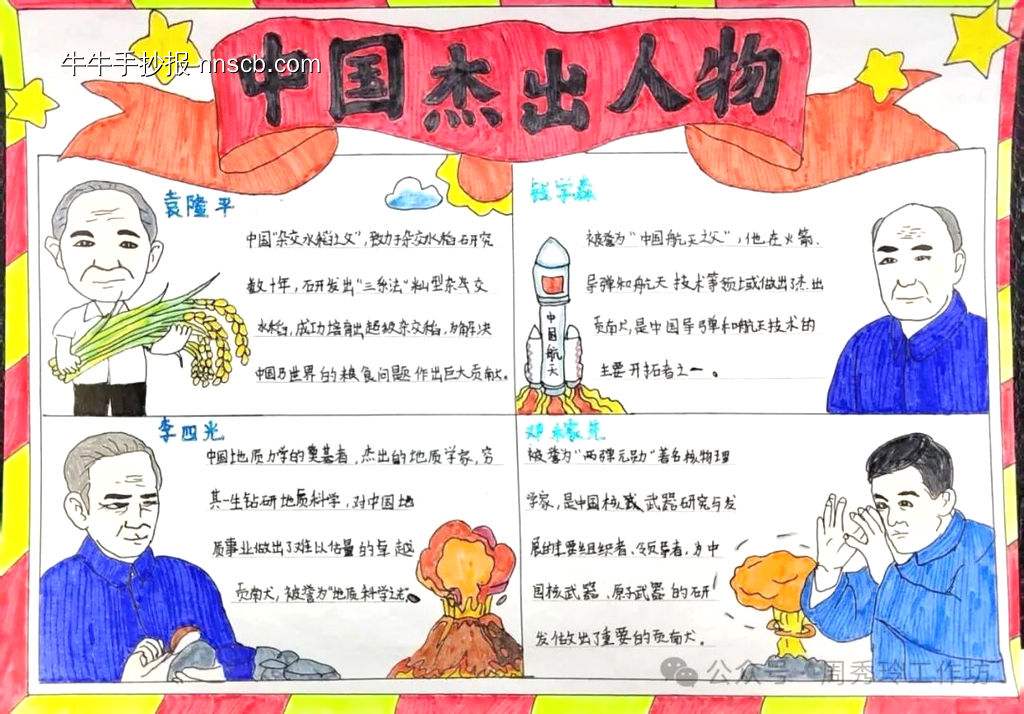 牛牛手抄报-nnscb.com
中国杰出人物
袁隆平
中国"杂交水稻之父",致力于杂交水稻研究
数十年,研发出"三系法"籼型杂交
水稻,成功培育出超级杂交稻,为解决
中国乃世界的粮食问题作出巨大贡献。
钱学森
被誉为"中国航天之父",他在火箭、
导弹和航天技术等领域做出了杰出
贡献,是中国导弹和航天技术的
主要开拓者之一。
中国航天
李四光
中国地质力学的奠基者、杰出的地质学家,穷
其一生钻研地质科学,对中国地
质事业做出了难以估量的卓越
贡献,被誉为"地质科学之
邓稼先
被誉为"两弹元勋"著名核物理
学家,是中国核武器研究与发
展的主要组织者、领导者,为中
国核武器、原子武器的研
发做出了重要的贡献。
公众号 周秀玲工作坊